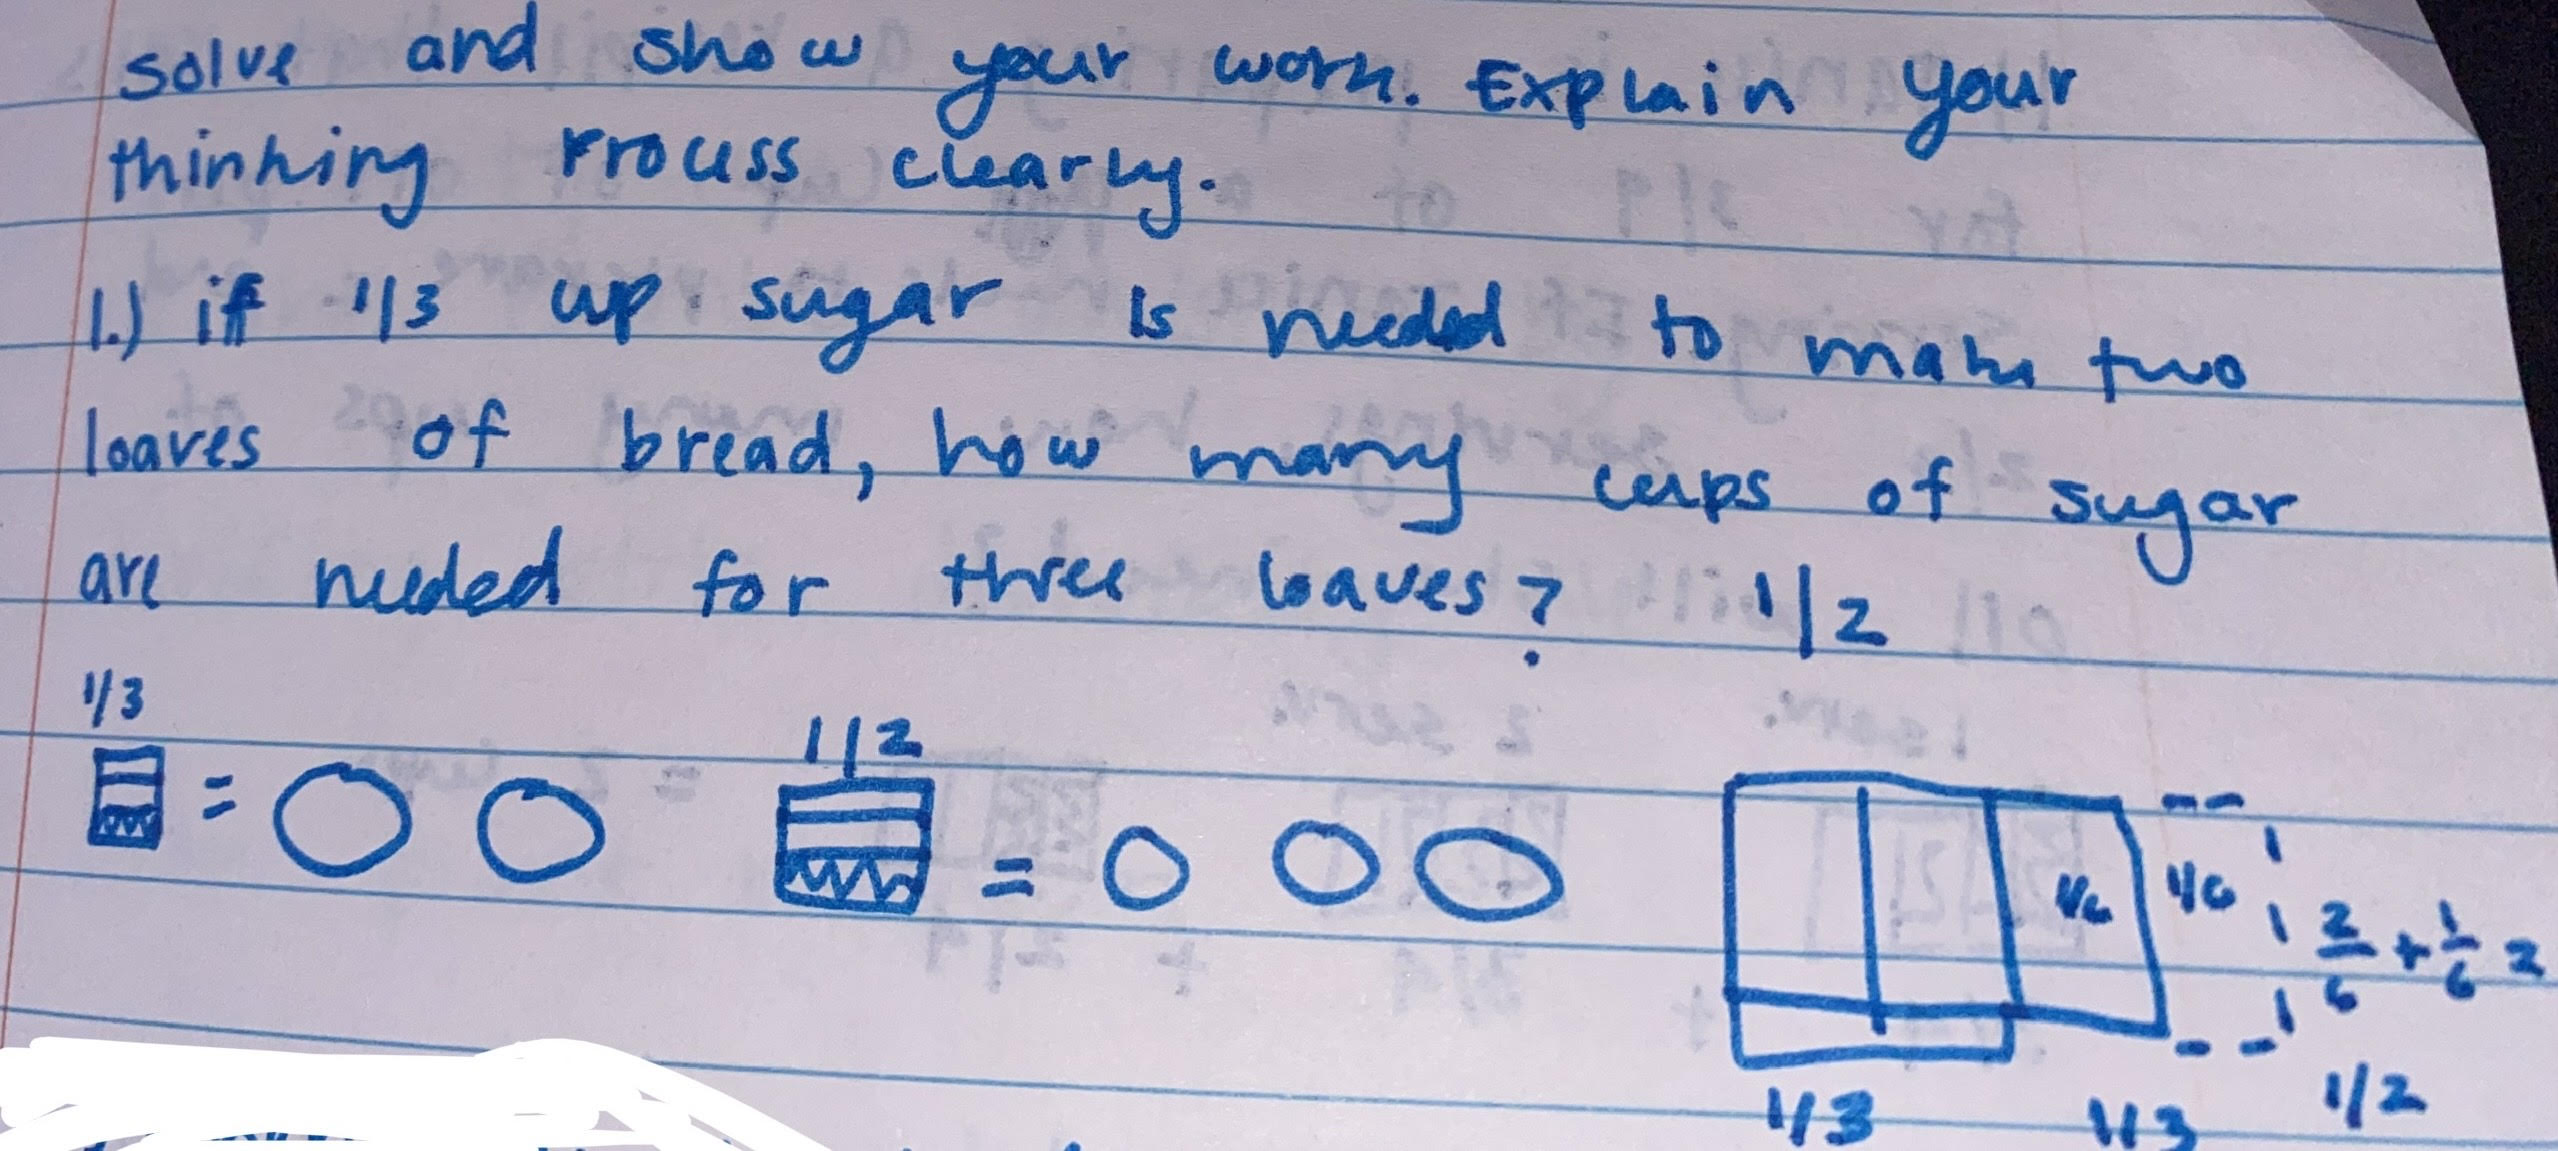 solve and show your work. Explain your
thinking process clearly.
1.) if 1/3 cup sugar is needed to make two
loaves of bread, how many cups of sugar
are needed for three loaves? 1/2
1/3
=
1/2
=
1/6 1/6
2/6 + 1/6 =
1/3 1/3 1/2